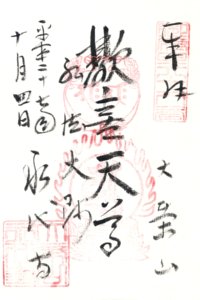 奉拝
大栄山
歓喜天尊
弘法大師
永代寺
平成二十七年
十月四日